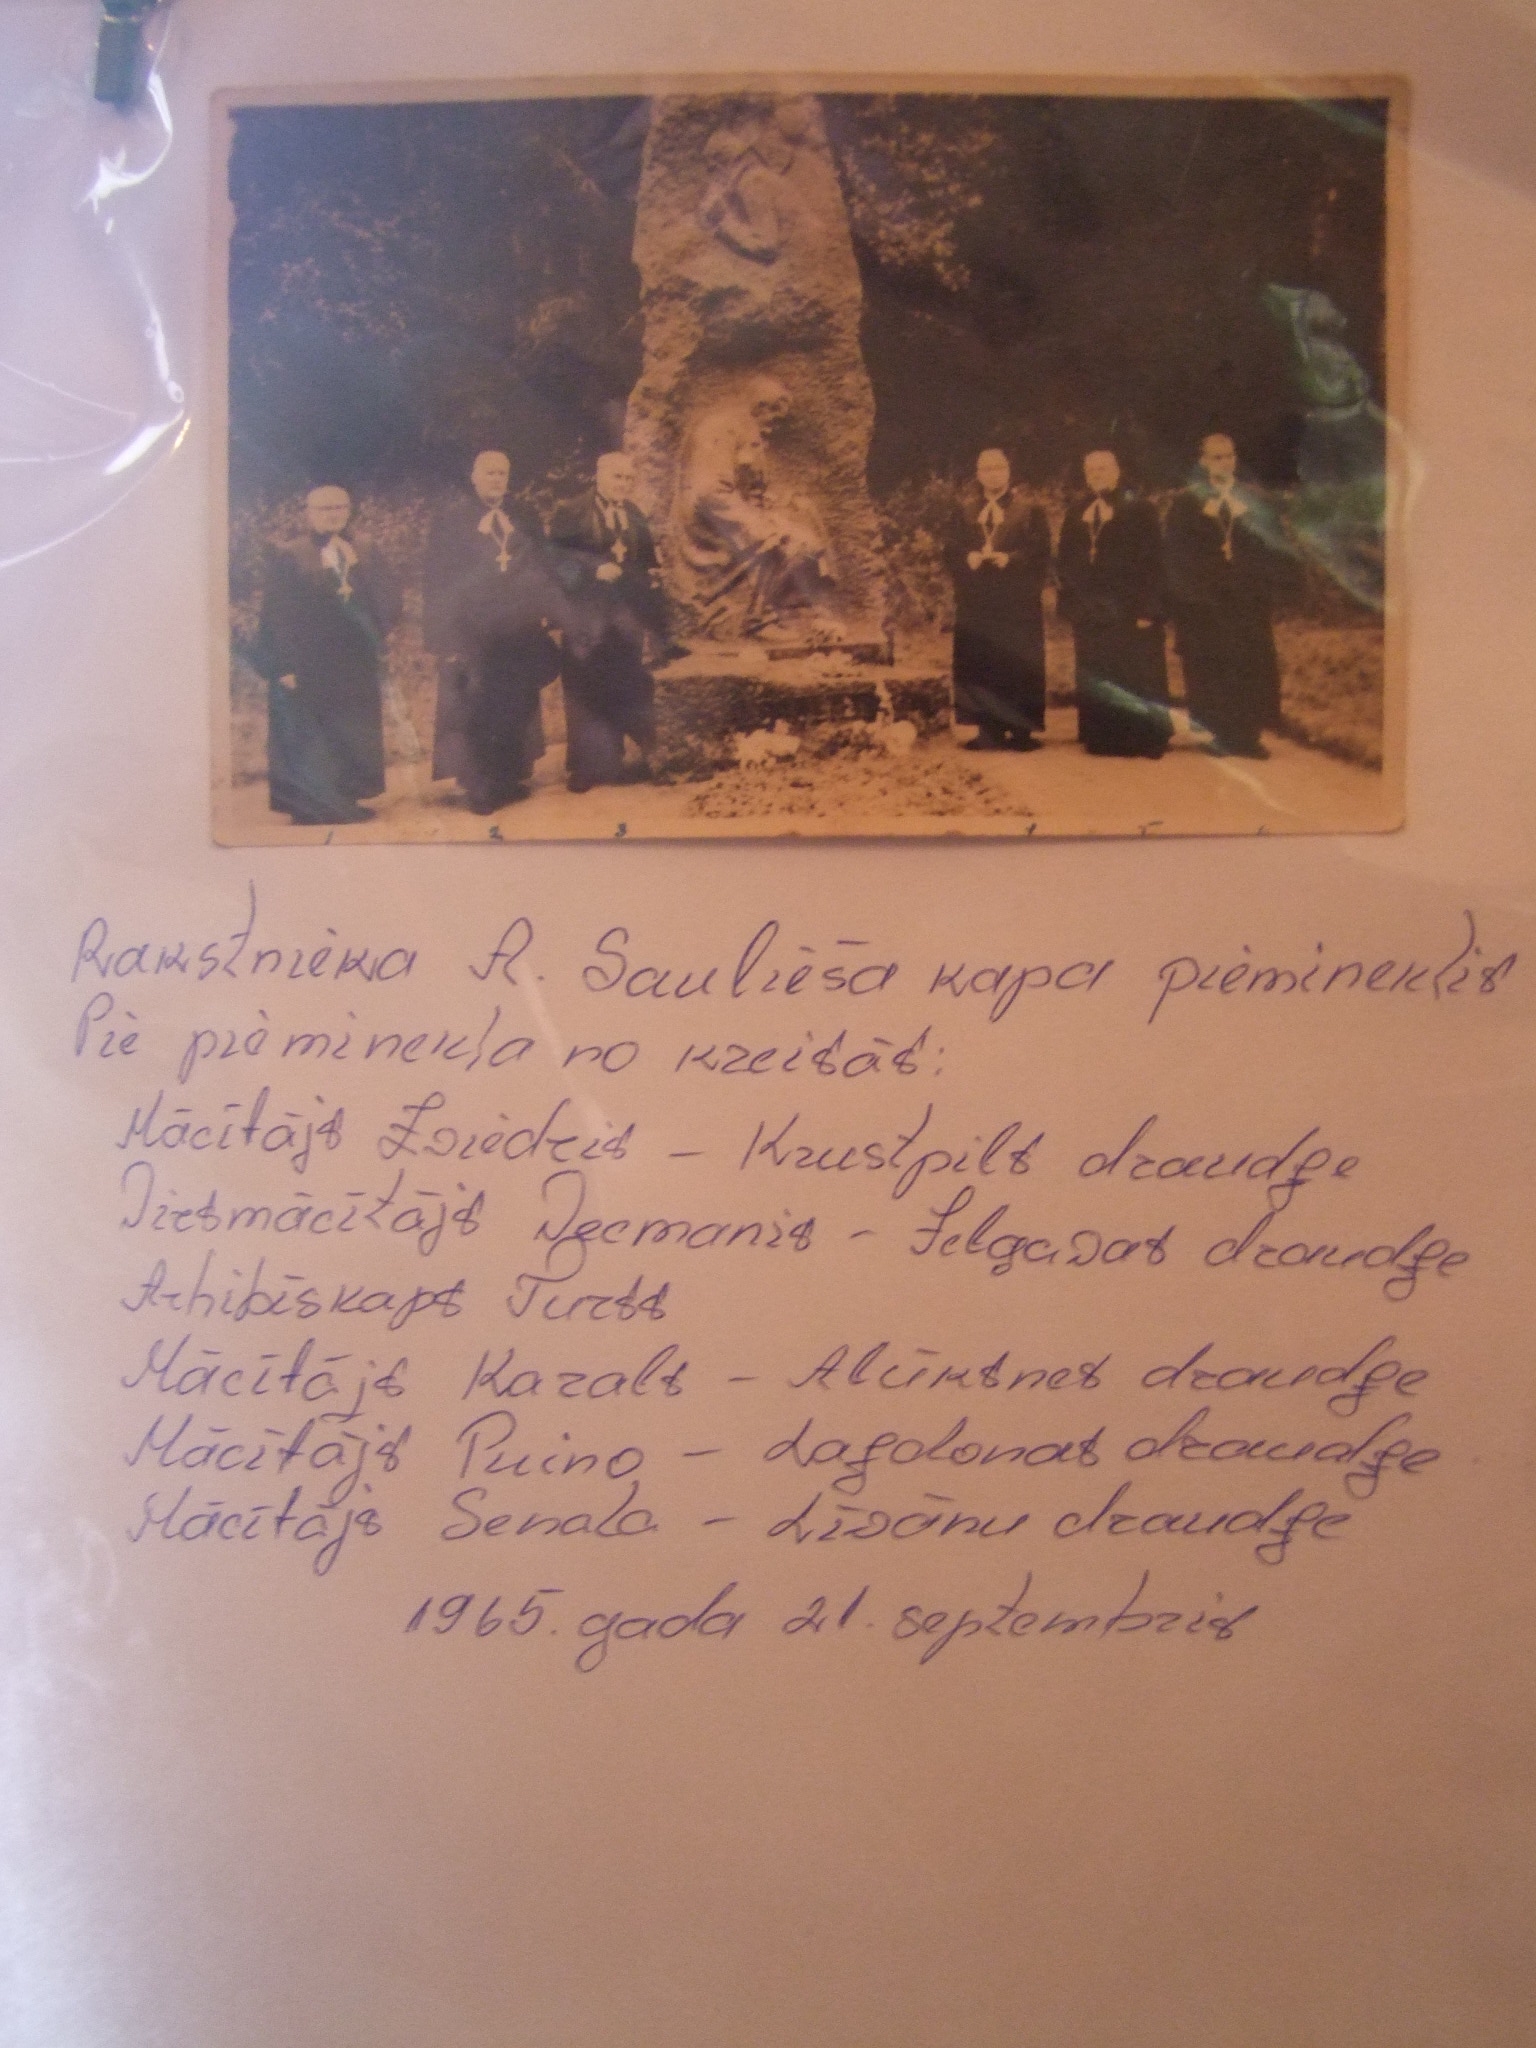 1 2 3 4 5
Rakstnieka A. Saulieša kapa piemineklis
Pie pieminekļa no kreisās:
Mācītājs Zviedris - Krustpils draudze
Virsmācītājs Vecmanis - Jelgavas draudze
Arhibīskaps Turss
Mācītājs Karals - Alūksnes draudze
Mācītājs Puino - Lazdonas draudze
Mācītājs - Līvānu draudze
1965. gada 21. septembris